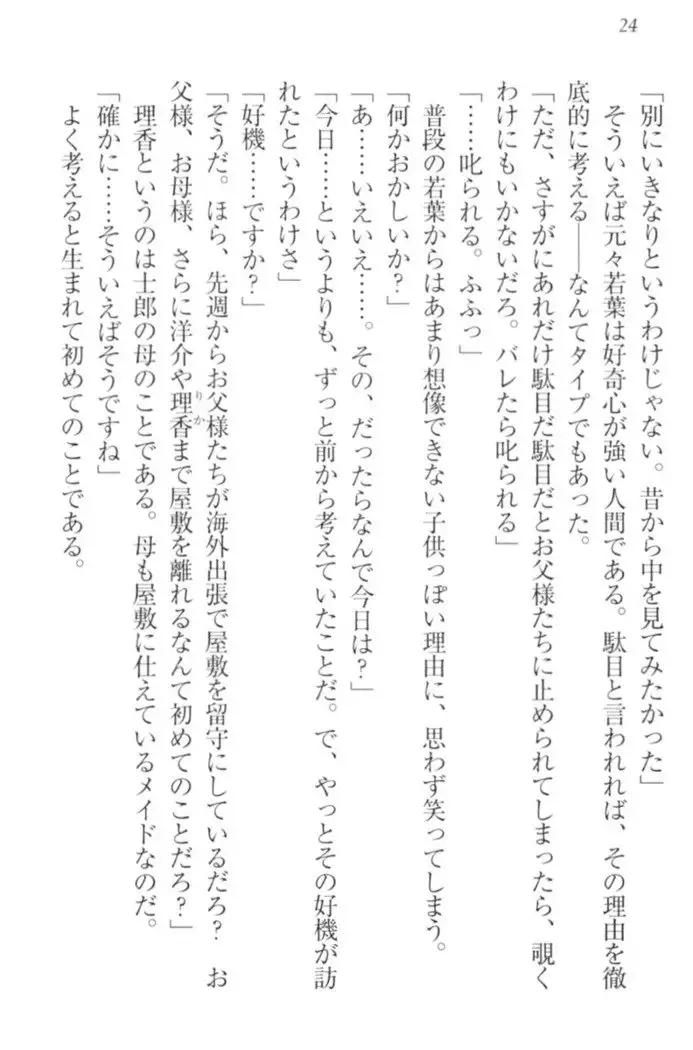 24
「別にいきなりというわけじゃない。昔から中を見てみたかった」
そういえば元々若葉は好奇心が強い人間である。駄目と言われれば、その理由を徹
底的に考える――なんてタイプでもあった。
「ただ、さすがにあれだけ駄目だ駄目だとお父様たちに止められてしまったら、覗く
わけにもいかないだろ。バレたら叱られる」
「……叱られる。ふふっ」
普段の若葉からはあまり想像できない子供っぽい理由に、思わず笑ってしまう。
「何かおかしいか？」
「あ……いえいえ……。その、だったらなんで今日は？」
「今日……というよりも、ずっと前から考えていたことだ。で、やっとその好機が訪
れたというわけさ」
「好機……ですか？」
「そうだ。ほら、先週からお父様たちが海外出張で屋敷を留守にしているだろ？　お
父様、お母様、さらに洋介や理香まで屋敷を離れるなんて初めてのことだろ？」
りか
理香というのは士郎の母のことである。母も屋敷に仕えているメイドなのだ。
「確かに……そういえばそうですね」
よく考えると生まれて初めてのことである。